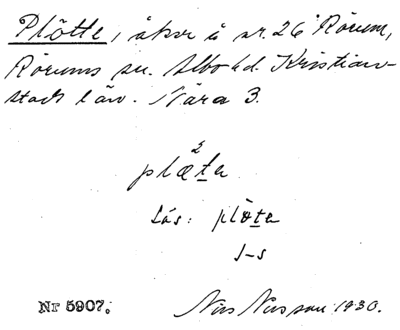 Plötte, åker å nr 26 Rörum,
Rörums sn. Albo hd. Kristian-
stads län. Nära 3.
2
plœte
Läs: plöte
s-s
Nr 5907.
Nils Nilsson 1930.